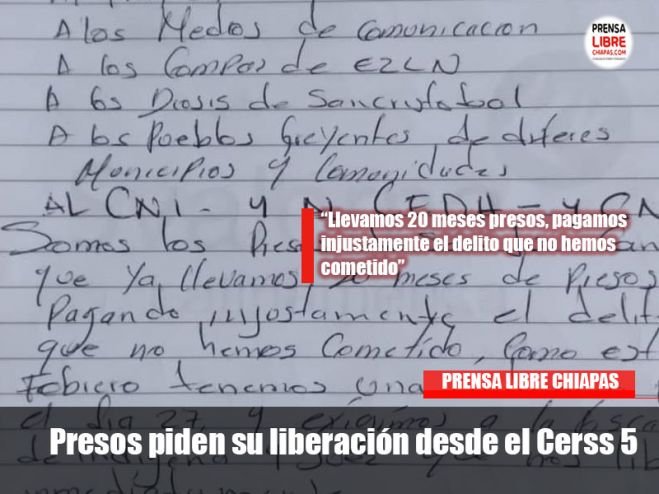 A los Medos de Comunicacion
PRENSA
LIBRE
CHIAPAS.COM
A los Compas de EZLN
A los Diosis de Sancristobal
A los Pueblos Creyentes de diferes
Municipios y Comonidades
AL CNI - y
CEDH - y CN
"Llevamos 20 meses presos, pagamos
injustamente el delito que no hemos
cometido"
Somos los
que ya llevamos 20 meses de Presos
Pagando injustamente el delit
que no hemos Cometido, Como est
Febiero tenemos una
PRENSA LIBRE CHIAPAS
el dia 27 y exigimos a la
Presos piden su liberación desde el Cerss 5